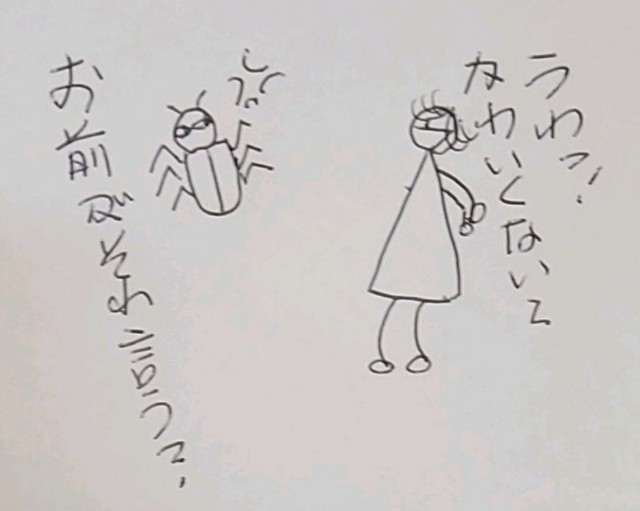 うわっ!
かわいくない?
お前がそれ言う?